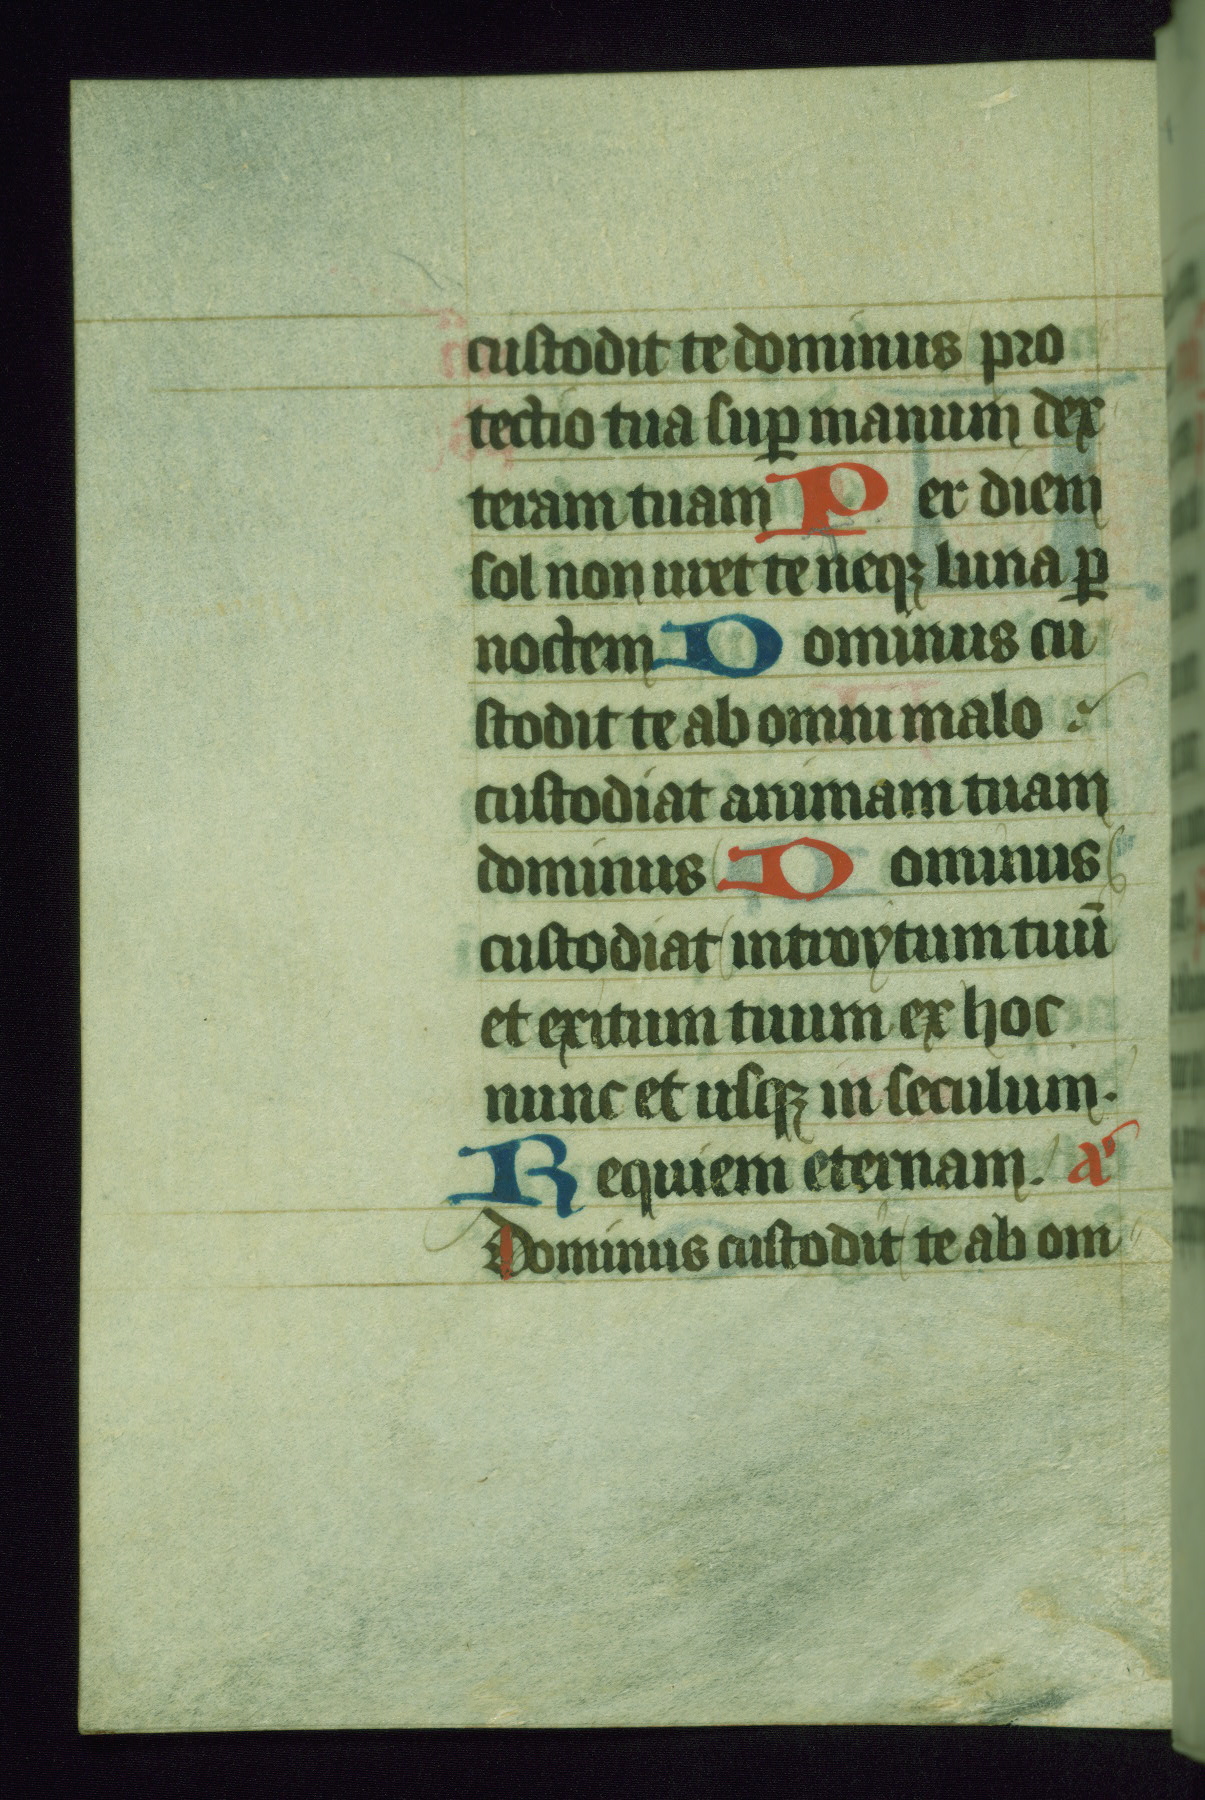 custodit te dominus pro
tectio tua suꝑ manum dex
teram tuam Per diem
sol non uret te neqꝫ luna ꝑ
noctem Dominus cu
stodit te ab omni malo
custodiat animam tuam
dominus Dominus
custodiat introytum tuū
et exitum tuum ex hoc
nunc et usqꝫ in seculum.
Requiem eternam. a'
Dominus custodit te ab om